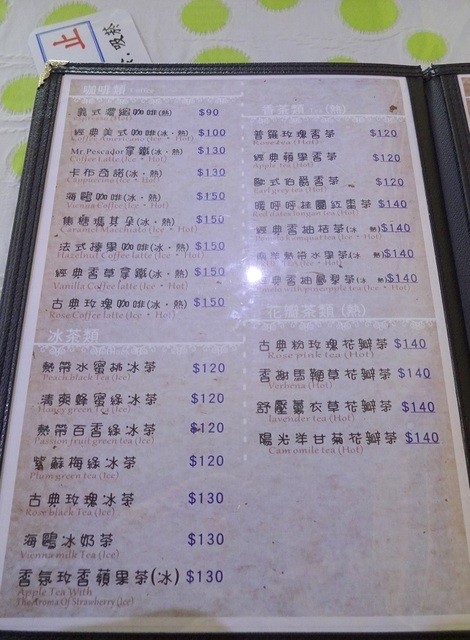 止
吸菸
咖啡類 Coffee
義式濃縮咖啡(熱) $90
Espresso (Hot)
經典美式咖啡(冰・熱) $100
Coffe Americano (Ice・Hot)
Mr.Pescador拿鐵(冰・熱) $130
Coffee Latte (Ice・Hot)
卡布奇諾(冰・熱) $130
Cappuccino (Ice・Hot)
海鷗咖啡(冰・熱) $150
Vienna Coffee (Ice・Hot)
焦糖瑪其朵(冰・熱) $150
Caramel Macchiato (Ice・Hot)
法式榛果咖啡(冰・熱) $150
Hazelnut Coffee latte (Ice・Hot)
經典香草拿鐵(冰・熱) $150
Vanilla Coffee latte (Ice・Hot)
古典玫瑰咖啡(冰・熱) $150
Rose Coffee latte (Ice・Hot)
冰茶類
熱帶水蜜桃冰茶 $120
Peach black Tea (Ice)
清爽蜂蜜綠冰茶 $120
Honey green Tea (Ice)
熱帶百香綠冰茶 $120
Passion fruit green tea (Ice)
紫蘇梅綠冰茶 $120
Plum green tea (Ice)
古典玫瑰冰茶 $130
Rose black Tea (Ice)
海鷗冰奶茶 $130
Vienna milk Tea (Ice)
香氛玫香蘋果茶(冰) $130
Apple Tea With
The Aroma Of Strawberry (Ice)
香茶類 Tea (熱)
普羅玫瑰香茶 $120
Rose tea (Hot)
經典蘋果香茶 $120
Apple tea (Hot)
歐式伯爵香茶 $120
Earl grey tea (Hot)
暖呼呼桂圓紅棗茶 $140
Red dates longan tea (Hot)
經典香柚桔茶(冰・熱) $140
熱帶水果茶(冰・熱) $140
經典香柚鳳梨茶(冰・熱) $140
花瓣茶類 (熱)
古典粉玫瑰花瓣茶 $140
Rose pink tea (Hot)
香甜馬鞭草花瓣茶 $140
Verbena (Hot)
舒壓薰衣草花瓣茶 $140
lavender tea (Hot)
陽光洋甘菊花瓣茶 $140
Cam omile tea (Hot)